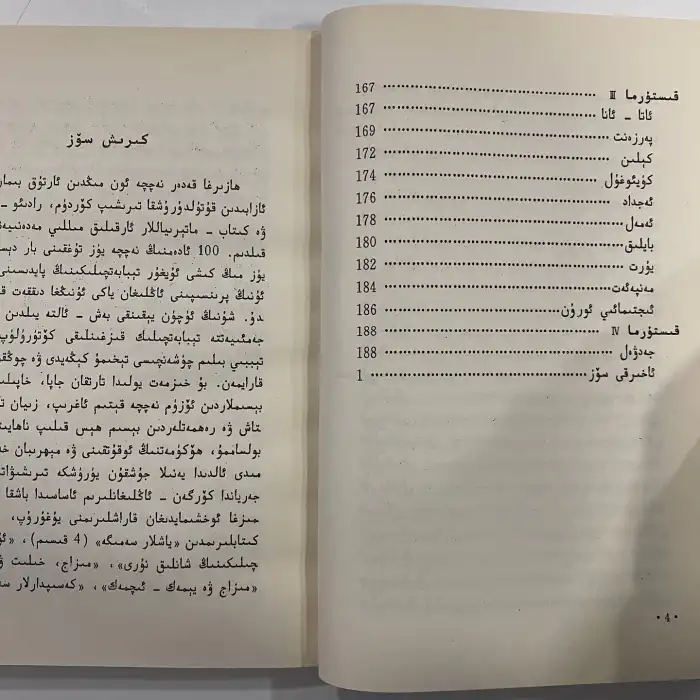 قىستۇرما Ⅲ ........................................ 167
ئاتا ـ ئانا ........................................ 167
پەرزەنت ........................................ 169
كېلىن ........................................ 172
كۈيئوغۇل ........................................ 174
ئەجداد ........................................ 176
ئەمەل ........................................ 178
بايلىق ........................................ 180
يۇرت ........................................ 182
مەنپەئەت ........................................ 184
ئىجتىمائىي ئورۇن ........................................ 186
قىستۇرما Ⅳ ........................................ 188
جەدۋەل ........................................ 188
ئاخىرقى سۆز ........................................ 1
· 4 ·
كىرىش سۆز
ھازىرغا قەدەر نەچچە ئون مىڭدىن ئارتۇق بىمار
ئازابىدىن قۇتۇلدۇرۇشقا تىرىشىپ كۆردۈم، رادىئو ـ
ۋە كىتاب ـ ماتېرىياللار ئارقىلىق مىللىي مەدەنىيە
قىلدىم. 100 ئادەمنىڭ نەچچە يۈز تۇغقىنى بار دېس
يۈز مىڭ كىشى ئۇيغۇر تېبابەتچىلىكىنىڭ پايدىسىنى
ئۇنىڭ پرىنسىپىنى ئاڭلىغان ياكى ئۇنىڭغا دىققەت ق
دۇ. شۇنىڭ ئۈچۈن يېقىنقى بەش ـ ئالتە يىلدىن
جەمئىيەتتە تېبابەتچىلىك قىزغىنلىقى كۆتۈرۈلۈپ
تېببىي بىلىم چۈشەنچىسى تېخىمۇ كېڭەيدى ۋە چوڭقۇ
قارايمەن. بۇ خىزمەت يولىدا تارتقان جاپا، خاپىلى
بېسىملاردىن ئۆزۈم نەچچە قېتىم ئاغرىپ، زىيان ت
تاش ۋە رەھمەتلەردىن بېسىم ھېس قىلىپ ناھايىت
بولساممۇ، ھۆكۈمەتنىڭ ئوقۇتقىنى ۋە مېھرىبان خە
مىدى ئالدىدا يەنىلا جۇشقۇن يۈرۈشكە تىرىشىۋات
جەرياندا كۆرگەن ـ ئاڭلىغانلىرىم ئاساسىدا باشقا
مىزغا ئوخشىمايدىغان قاراشلىرىمنى يۇغۇرۇپ،
كىتابلىرىمدىن «ياشلار سەمىگە» (4 قىسىم)، «ئۇ
چىلىكىنىڭ شانلىق نۇرى»، «مىزاج، خىلىت ۋ
«مىزاج ۋە يېمەك ـ ئىچمەك»، «كەسىپدارلار سە